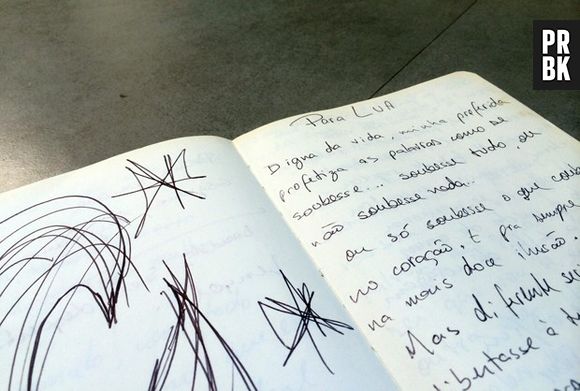 PR
BK
Para LUA
Digna da vida, minha preferida
profetiza as palavras como se
soubesse... soubesse tudo, ou
não soubesse nada..
ou só soubesse o que coube
no coração, E pra sempre
na mais doce ilusão.
Mas diferente seri
libertasse à t